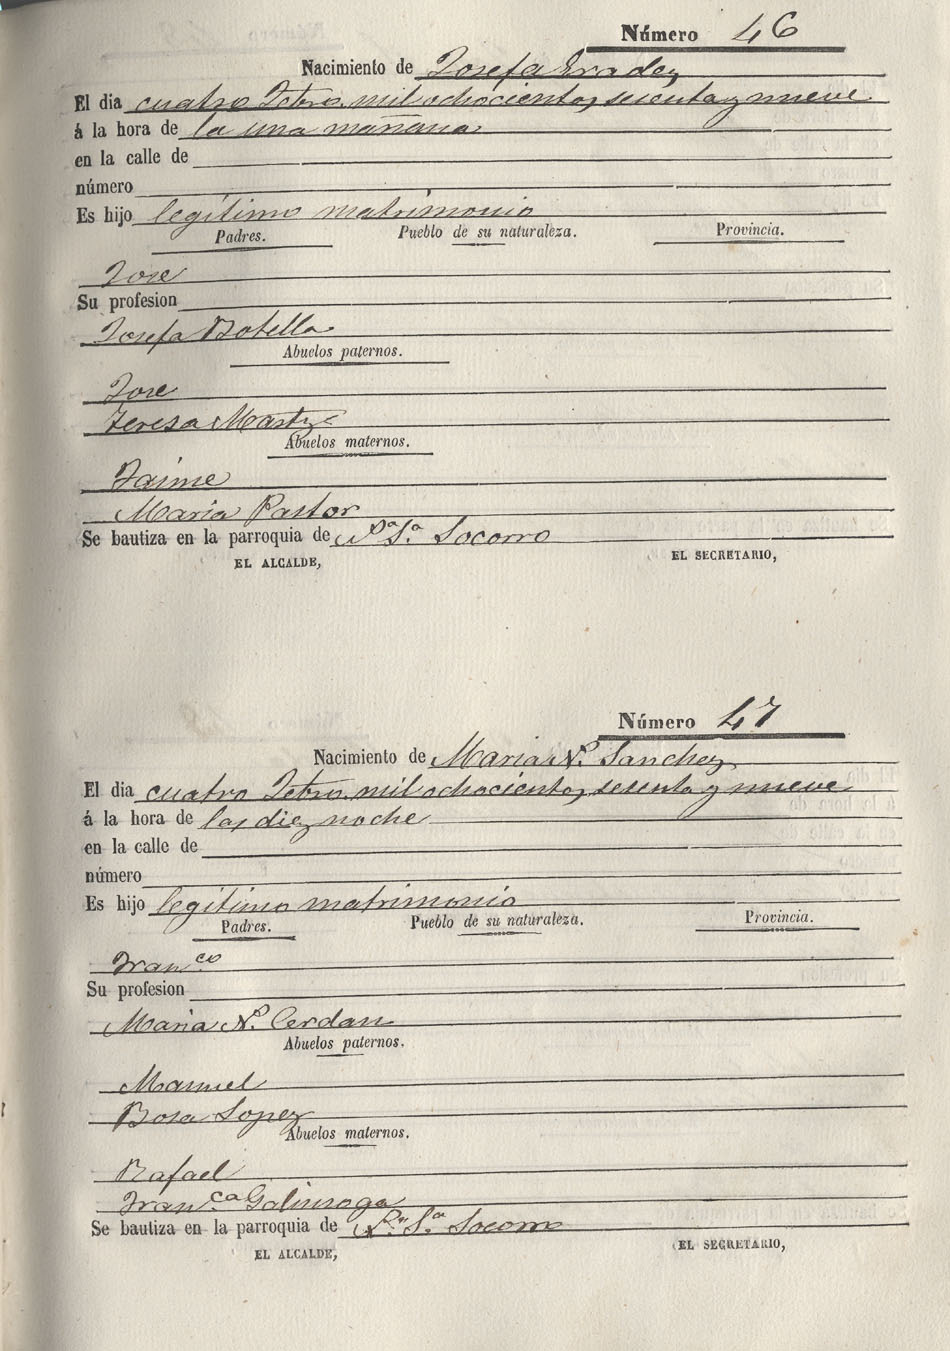 Número 46
Nacimiento de Josefa Eradez
El dia cuatro Febro. mil ochocientos, sesenta y nueve
á la hora de la una mañana
en la calle de
número
Es hijo legítimo matrimonio
Padres. Pueblo de su naturaleza. Provincia.
Jose
Su profesion
Josefa Botella
Abuelos paternos.
Jose
Teresa Martz
Abuelos maternos.
Jaime
Maria Pastor
Se bautiza en la parroquia de Na. Sa. Socorro
EL ALCALDE, EL SECRETARIO,
Número 47
Nacimiento de Maria Na. Sanchez
El dia cuatro Febro. mil ochocientos, sesenta y nueve
á la hora de las diez noche
en la calle de
número
Es hijo legítimo matrimonio
Padres. Pueblo de su naturaleza. Provincia.
Franco.
Su profesion
Maria Na. Cerdan
Abuelos paternos.
Manuel
Rosa Lopez
Abuelos maternos.
Rafael
Franca. Galinsoga
Se bautiza en la parroquia de Na. Sa. Socorro
EL ALCALDE, EL SECRETARIO,